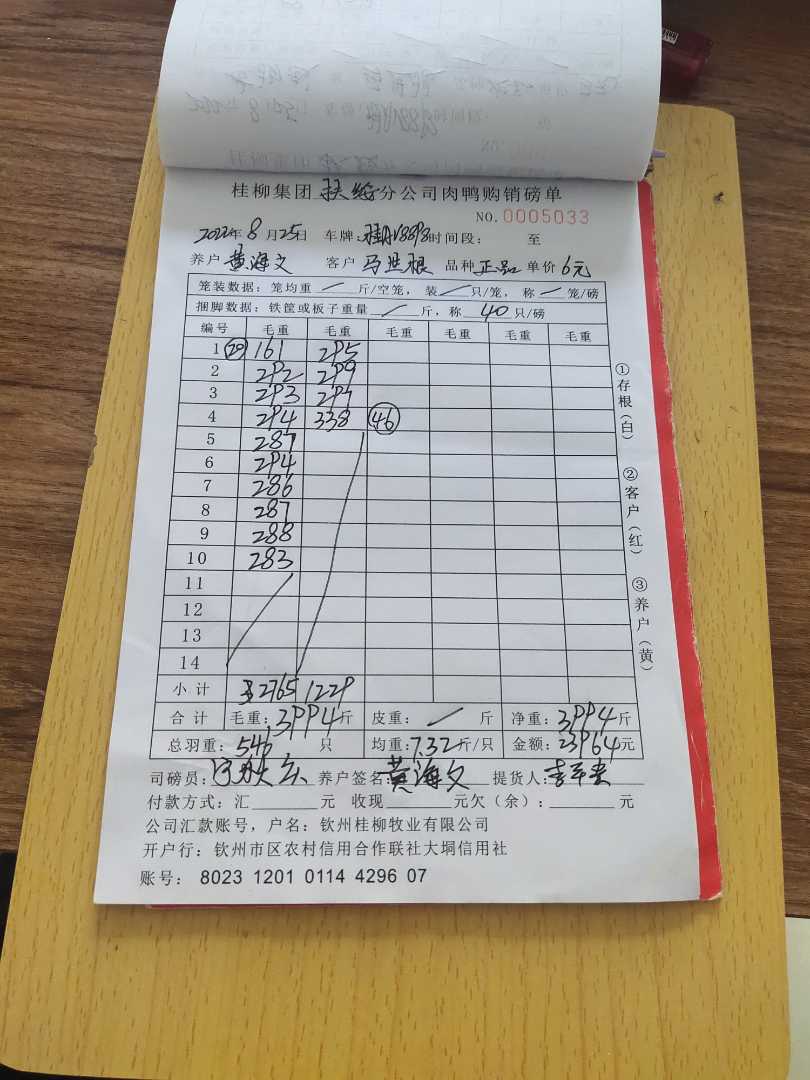 桂柳集团 扶绥 分公司肉鸭购销磅单
NO.0005033
2022年 8 月 25日 车牌: 时间段: 至
养户 黄海文 客户 马世根 品种 正品 单价 6元
笼装数据: 笼均重 / 斤/空笼, 装 / 只/笼, 称 / 笼/磅
捆脚数据: 铁筐或板子重量 / 斤, 称 40 只/磅
编号 毛重 毛重 毛重 毛重 毛重 毛重
1 20 161 295
2 292 299
3 293 297
4 294 338 46
5 287
6 294
7 286
8 287
9 288
10 283
11
12
13
14
小计 2765 1229
合计 毛重: 3994斤 皮重: / 斤 净重: 3994斤
总羽重: 546 只 均重: 7.32斤/只 金额: 23964元
司磅员: 养户签名: 黄海文 提货人:
付款方式: 汇 元 收现 元欠(余): 元
公司汇款账号, 户名: 钦州桂柳牧业有限公司
开户行: 钦州市区农村信用合作联社大垌信用社
账号: 8023 1201 0114 4296 07
①存根(白)
②客户(红)
③养户(黄)